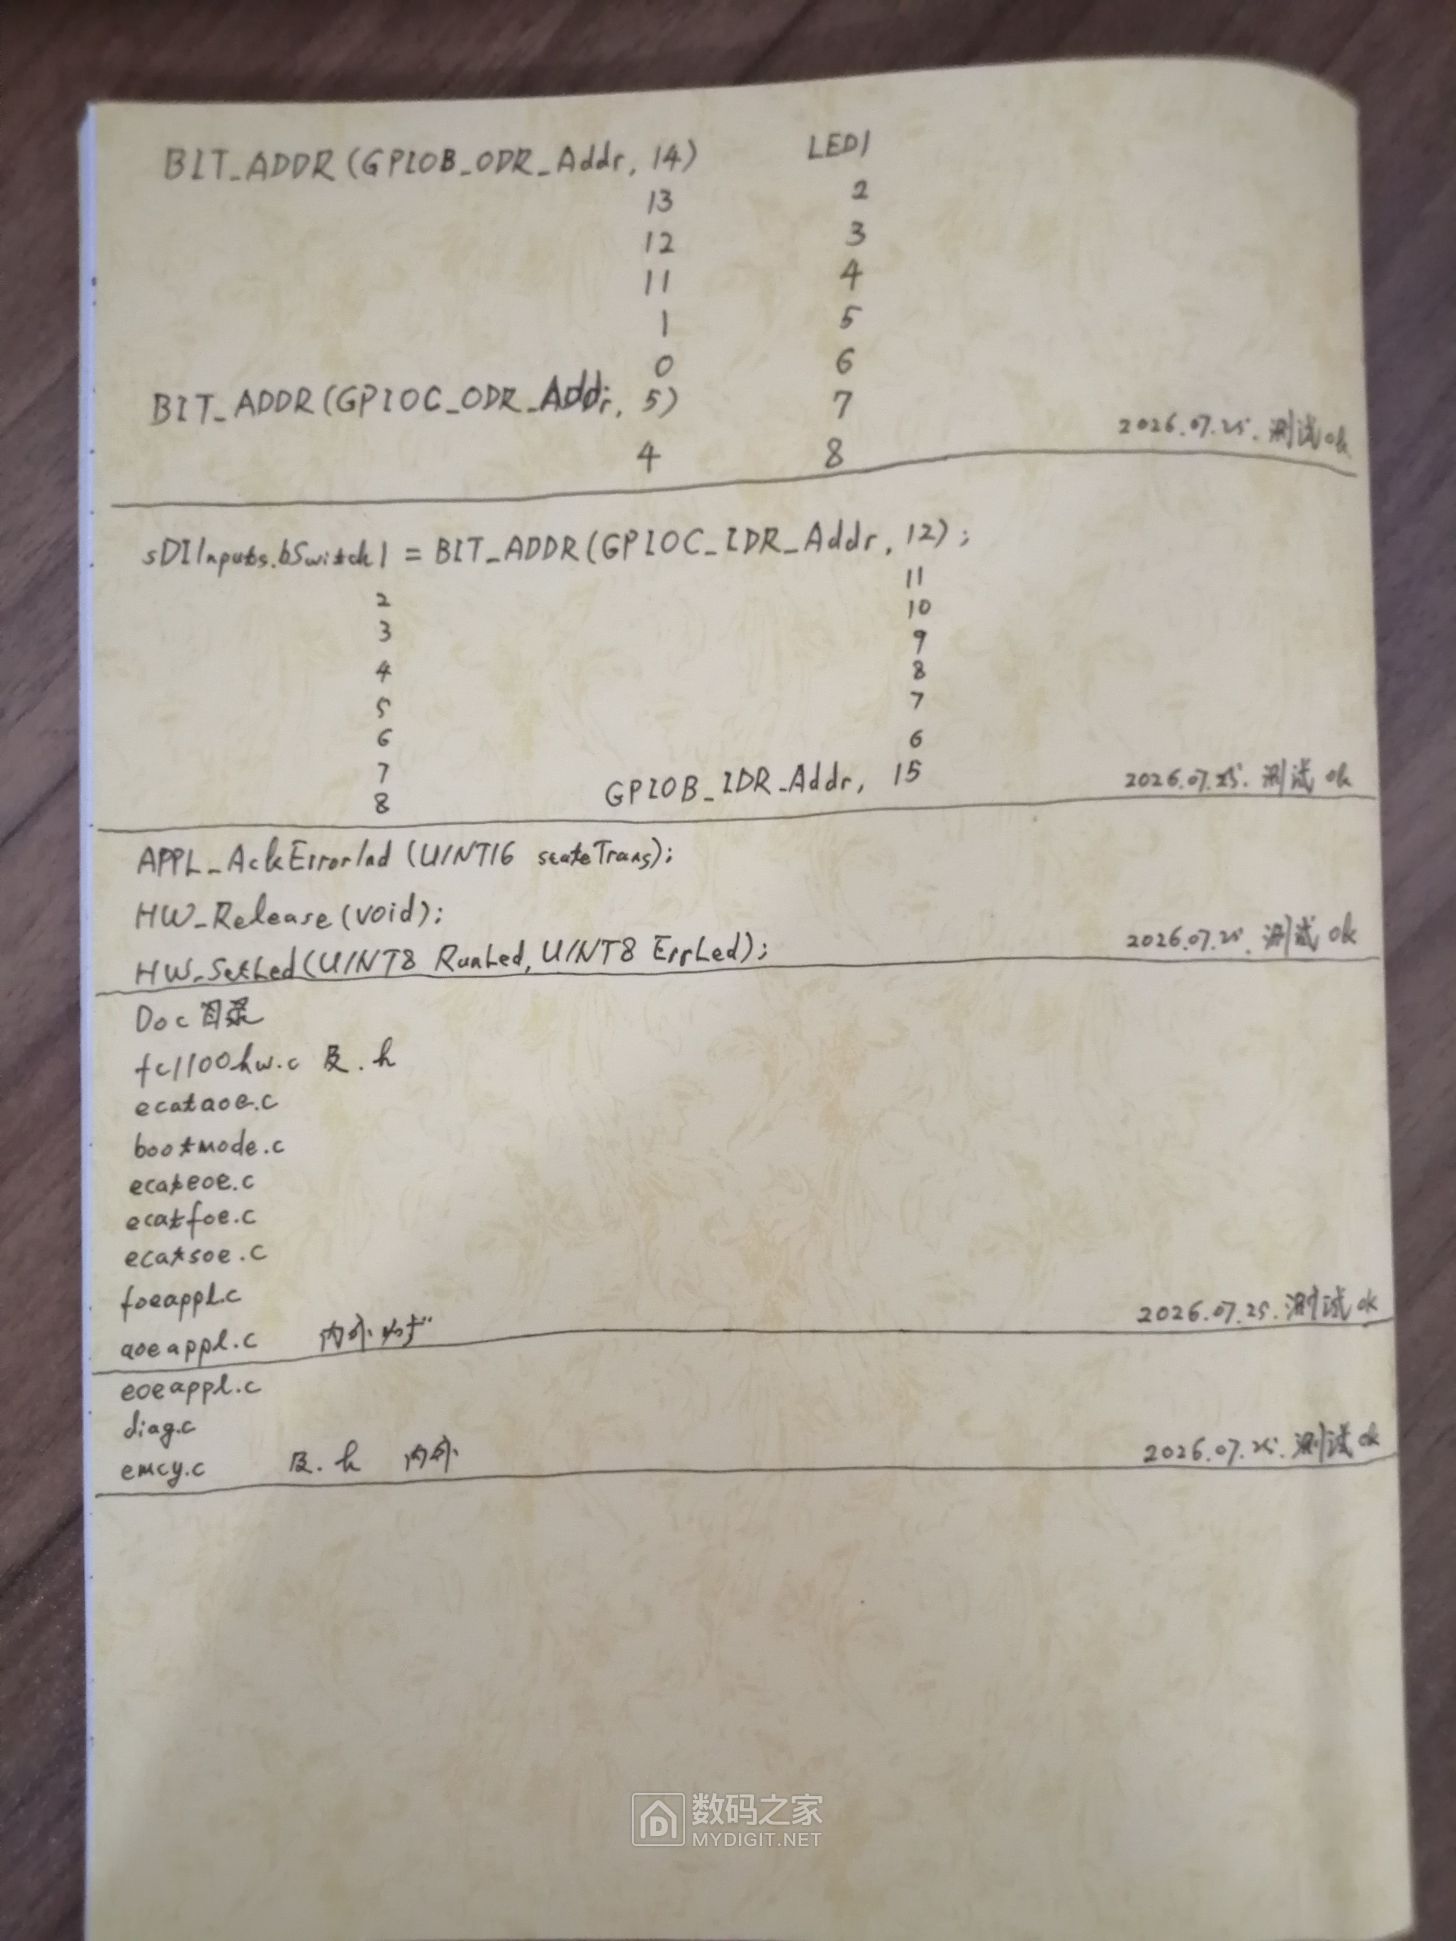 BIT_ADDR(GPIOB_ODR_Addr, 14) LED1
13 2
12 3
11 4
1 5
0 6
BIT_ADDR(GPIOC_ODR_Addr, 5) 7
2026.07.25. 测试ok
4 8
sDIInputs.bSwitch1 = BIT_ADDR(GPIOC_IDR_Addr, 12);
2 11
3 10
4 9
5 8
6 7
7 6
8 GPIOB_IDR_Addr, 15 2026.07.25. 测试ok
APPL_AckErrorInd (UINT16 stateTrans);
HW_Release(void);
HW_SetLed(UINT8 RunLed, UINT8 ErrLed); 2026.07.25. 测试ok
Doc目录
fc1100hw.c 及.h
ecataoe.c
bootmode.c
ecateoe.c
ecatfoe.c
ecatsoe.c
foeappl.c
2026.07.25. 测试ok
aoeappl.c 内外
eoeappl.c
diag.c
emcy.c 及.h 内外 2026.07.25. 测试ok
数码之家
MYDIGIT.NET